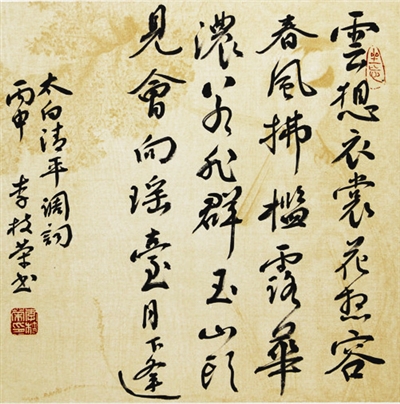 雲想衣裳花想容
春風拂檻露華
濃若非群玉山頭
見會向瑶臺月下逢
太白清平調詞
丙申 李枝荣书